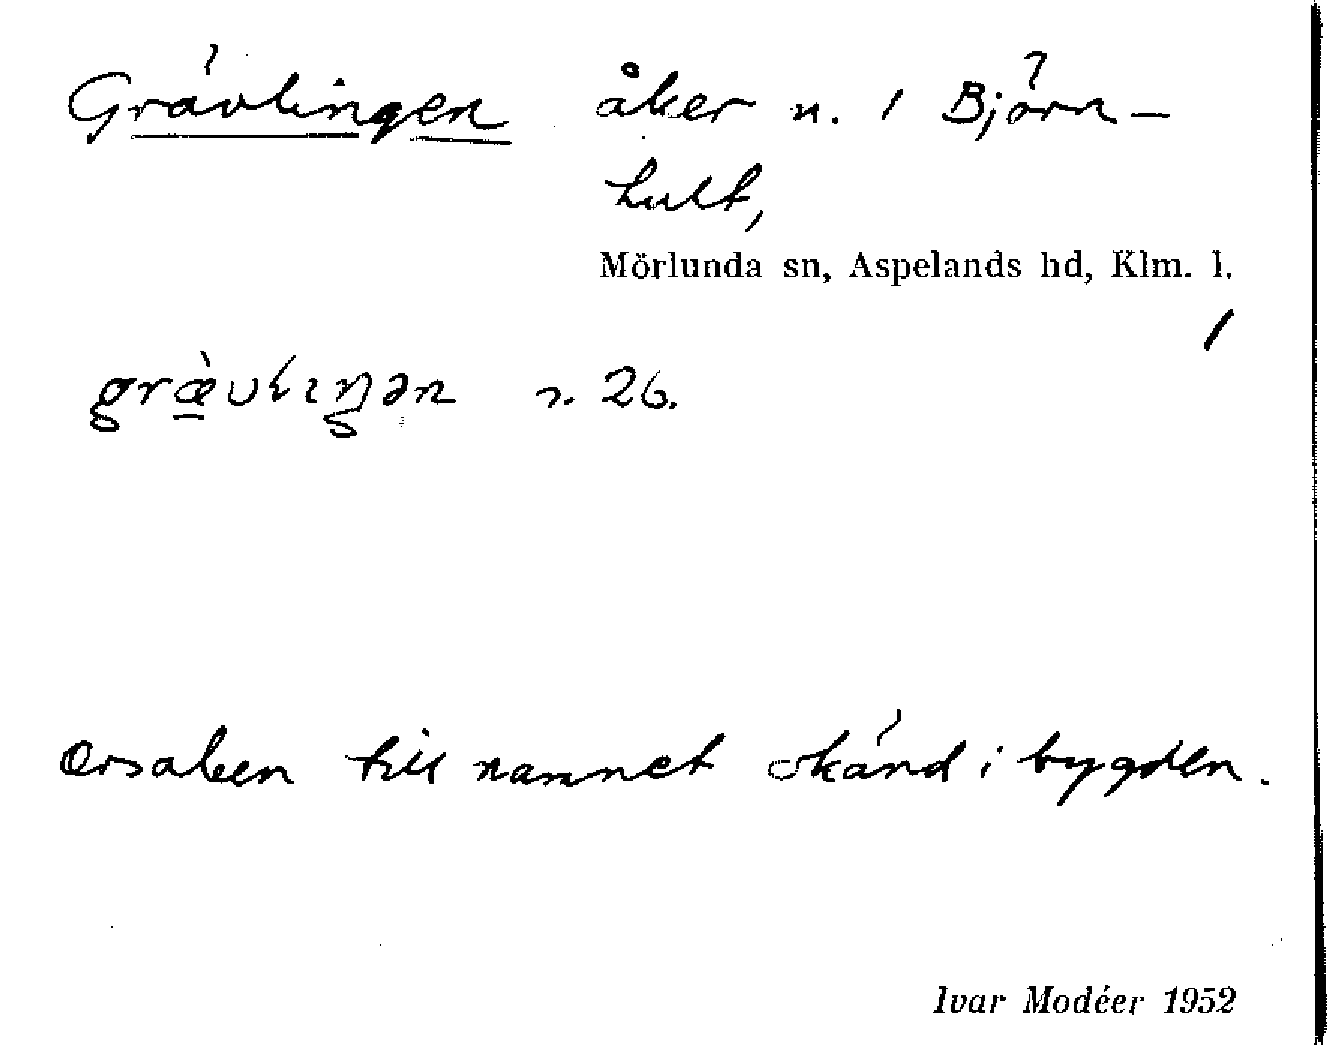 Grävlingen åker n. 1 Björn-
hult,
Mörlunda sn, Aspelands hd, Klm. l.
/
græ̀vlıŋən s. 26.
Orsaken till namnet okänd i bygden.
Ivar Modéer 1952